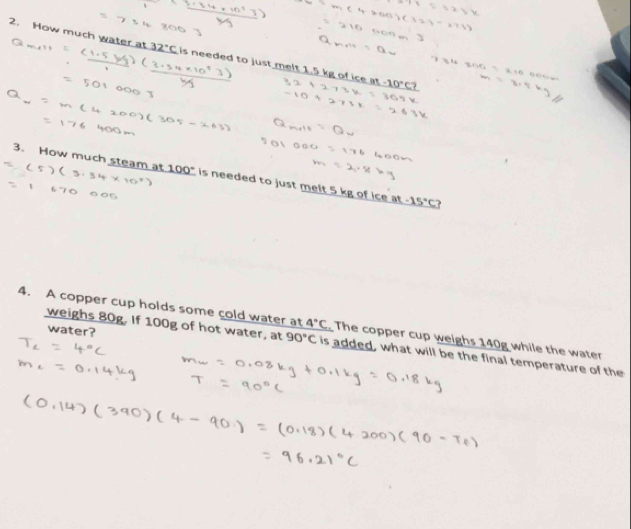 = 734 800 J
= 210 000m J
Qmelt = Qw
734 800 = 210 000m
m = 3.5 kg
2. How much water at 32°C is needed to just melt 1.5 kg of ice at -10°C?
Qmelt = (1.5 kg)(3.34 × 10⁵ J)
1 kg
= 501 000 J
32 + 273K = 305K
-10 + 273K = 263K
Qw = m(4 200)(305 - 263)
= 176 400m
Qmelt = Qw
501 000 = 176 400m
m = 2.8 kg
3. How much steam at 100° is needed to just melt 5 kg of ice at -15°C?
= (5)(3.34 × 10⁵)
= 1 670 000
4. A copper cup holds some cold water at 4°C. The copper cup weighs 140g while the water
weighs 80g. If 100g of hot water, at 90°C is added, what will be the final temperature of the
water?
Tc = 4°C
mc = 0.14kg
mw = 0.08kg + 0.1kg = 0.18kg
T = 90°C
(0.14)(390)(4 - 90) = (0.18)(4 200)(90 - Tf)
= 96.21°C